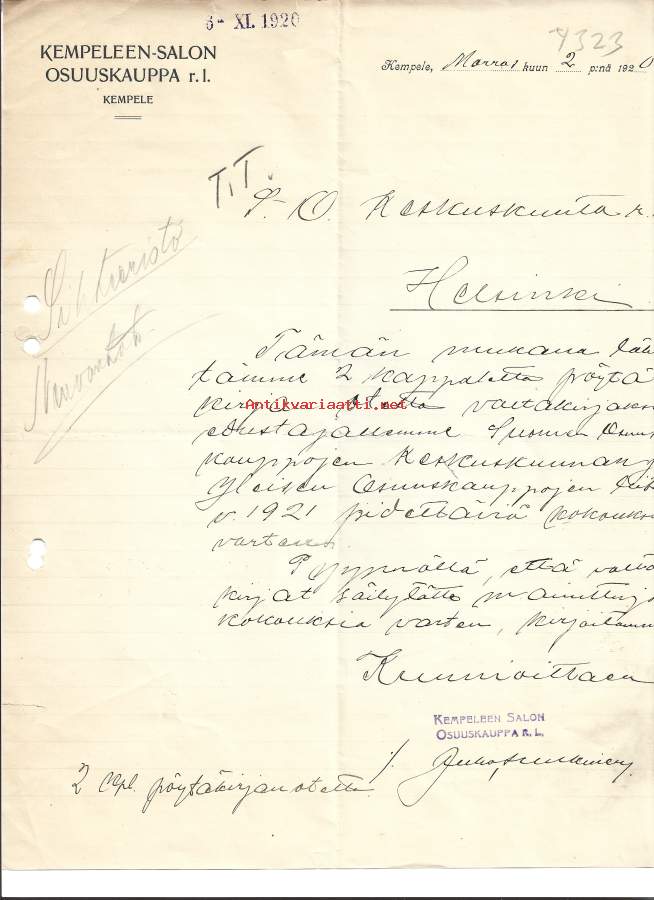 6- XI. 1920
4323
KEMPELEEN-SALON
OSUUSKAUPPA r. l.
KEMPELE
Kempele, Marras kuun 2 p:nä 1920
T.T.
S. O. Keskuskunta r.
Helsinki
Sihteeristö
Tämän mukana lähe
tämme 2 kappaletta pöytä
kirjan otetta valtakirjaksi
edustajallemme Suomen Osuus
kauppojen Keskuskunnan j
Yleisen Osuuskauppojen Liit
v. 1921 pidettäviä kokouks
varten.
Pyynnöllä, että valta
kirjat säilytätte mainittuja
kokouksia varten, kirjoitamme
Kunnioittaen
KEMPELEEN SALON
OSUUSKAUPPA R. L.
2 kpl. pöytäkirjan otetta
Antikvariaatti.net